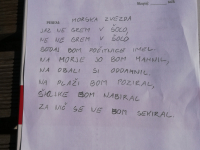 MORSKA ZVEZDA
JAZ NE GREM V ŠOLO,
NE NE GREM V ŠOLO
SEDAJ BOM POČITNICE IMEL.
NA MORJE SE BOM
NA OBALI SI ODDAHNIL,
NA PLAŽI BOM POZIRAL,
SLIKE BOM NABIRAL
ZA NIČ SE NE BOM SEKIRAL